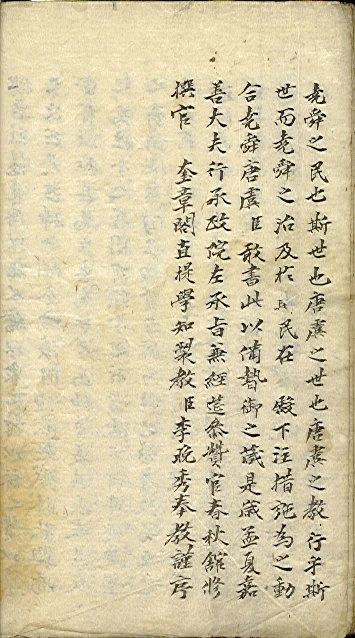 堯舜之民也斯世也唐虞之世也唐虞之教行乎斯
世而堯舜之治及於斯民在 殿下注措施爲之動
合堯舜唐虞臣敢書此以備暬御之箴是歲孟夏嘉
善大夫行承政院左承旨兼經筵參贊官春秋館修
撰官 奎章閣直提學知製教臣李晩秀奉教謹序